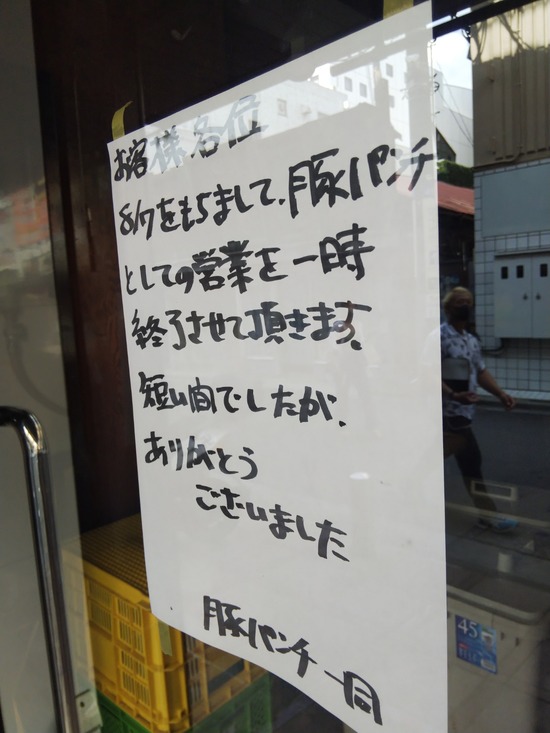 お客様各位
8/7をもちまして、豚パンチ
としての営業を一時
終了させて頂きます。
短い間でしたが、
ありがとう
ございました
豚パンチ一同
45